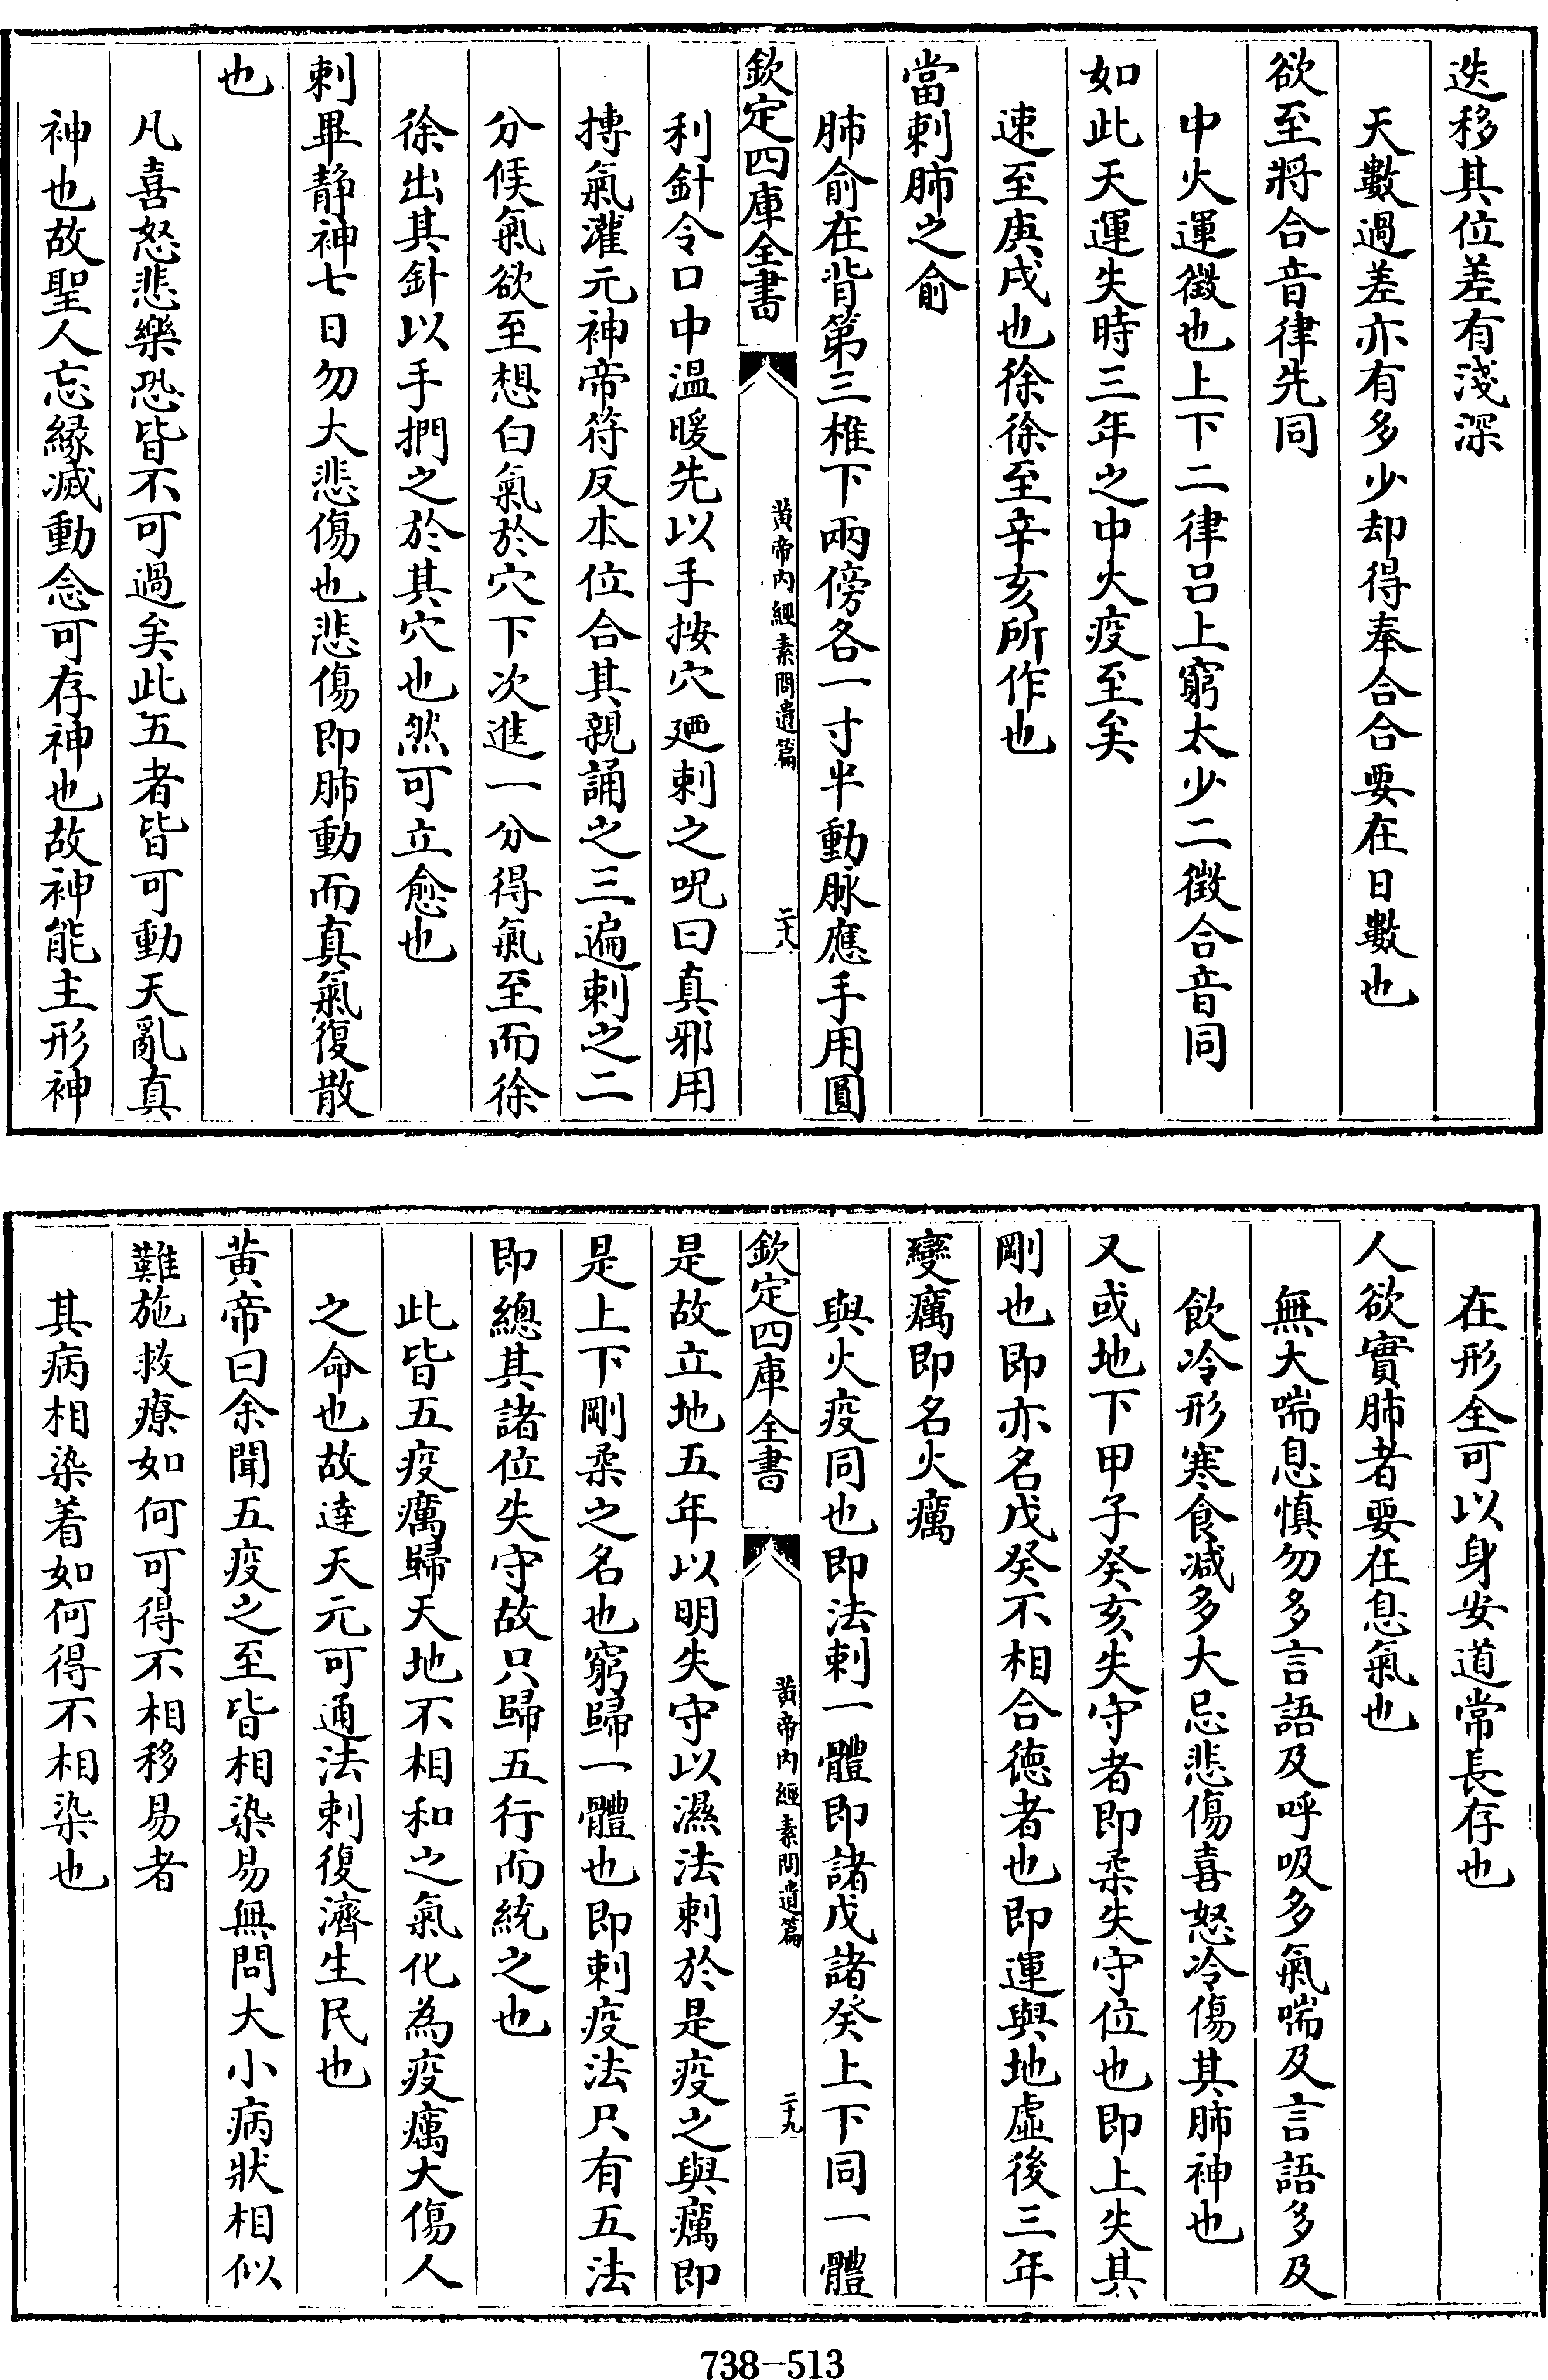 迭移其位差有淺深
天數過差亦有多少却得奉合合要在日數也
欲至將合音律先同
中火運徵也上下二律呂上窮太少二徵合音同
如此天運失時三年之中火疫至矣
速至庚戌也徐徐至辛亥所作也
當刺肺之俞
肺俞在背第三椎下兩傍各一寸半動脉應手用圓
欽定四庫全書
黄帝內經素問遺篇
二十八
利針令口中溫暖先以手按穴廼刺之呪曰真邪用
摶氣灌元神帝符反本位合其親誦之三遍刺之二
分候氣欲至想白氣於穴下次進一分得氣至而徐
徐出其針以手捫之於其穴也然可立愈也
刺畢静神七日勿大悲傷也悲傷即肺動而真氣復散
也
凡喜怒悲樂恐皆不可過矣此五者皆可動天亂真
神也故聖人忘縁滅動念可存神也故神能主形神
在形全可以身安道常長存也
人欲實肺者要在息氣也
無大喘息慎勿多言語及呼吸多氣喘及言語多及
飲冷形寒食减多大忌悲傷喜怒冷傷其肺神也
又或地下甲子癸亥失守者即柔失守位也即上失其
剛也即亦名戊癸不相合德者也即運與地虛後三年
變癘即名火癘
與火疫同也即法刺一體即諸戊諸癸上下同一體
欽定四庫全書
黄帝內經素問遺篇
二十九
是故立地五年以明失守以濕法刺於是疫之與癘即
是上下剛柔之名也窮歸一體也即刺疫法只有五法
即總其諸位失守故只歸五行而統之也
此皆五疫癘歸天地不相和之氣化為疫癘大傷人
之命也故達天元可通法刺復濟生民也
黄帝曰余聞五疫之至皆相染易無問大小病狀相似
難施救療如何可得不相移易者
其病相染着如何得不相染也
738-513